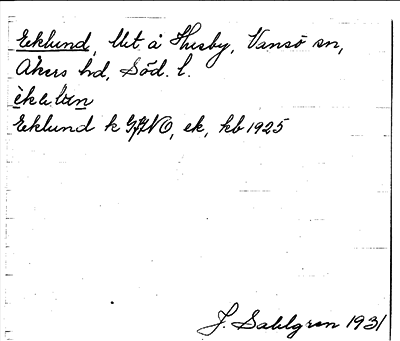 Eeklund, lht å Husby, Vansö sn,
Åkers hd, Söd. l.
Eeklund k GJV NO, ek, kb 1925
J. Sahlgren 1931